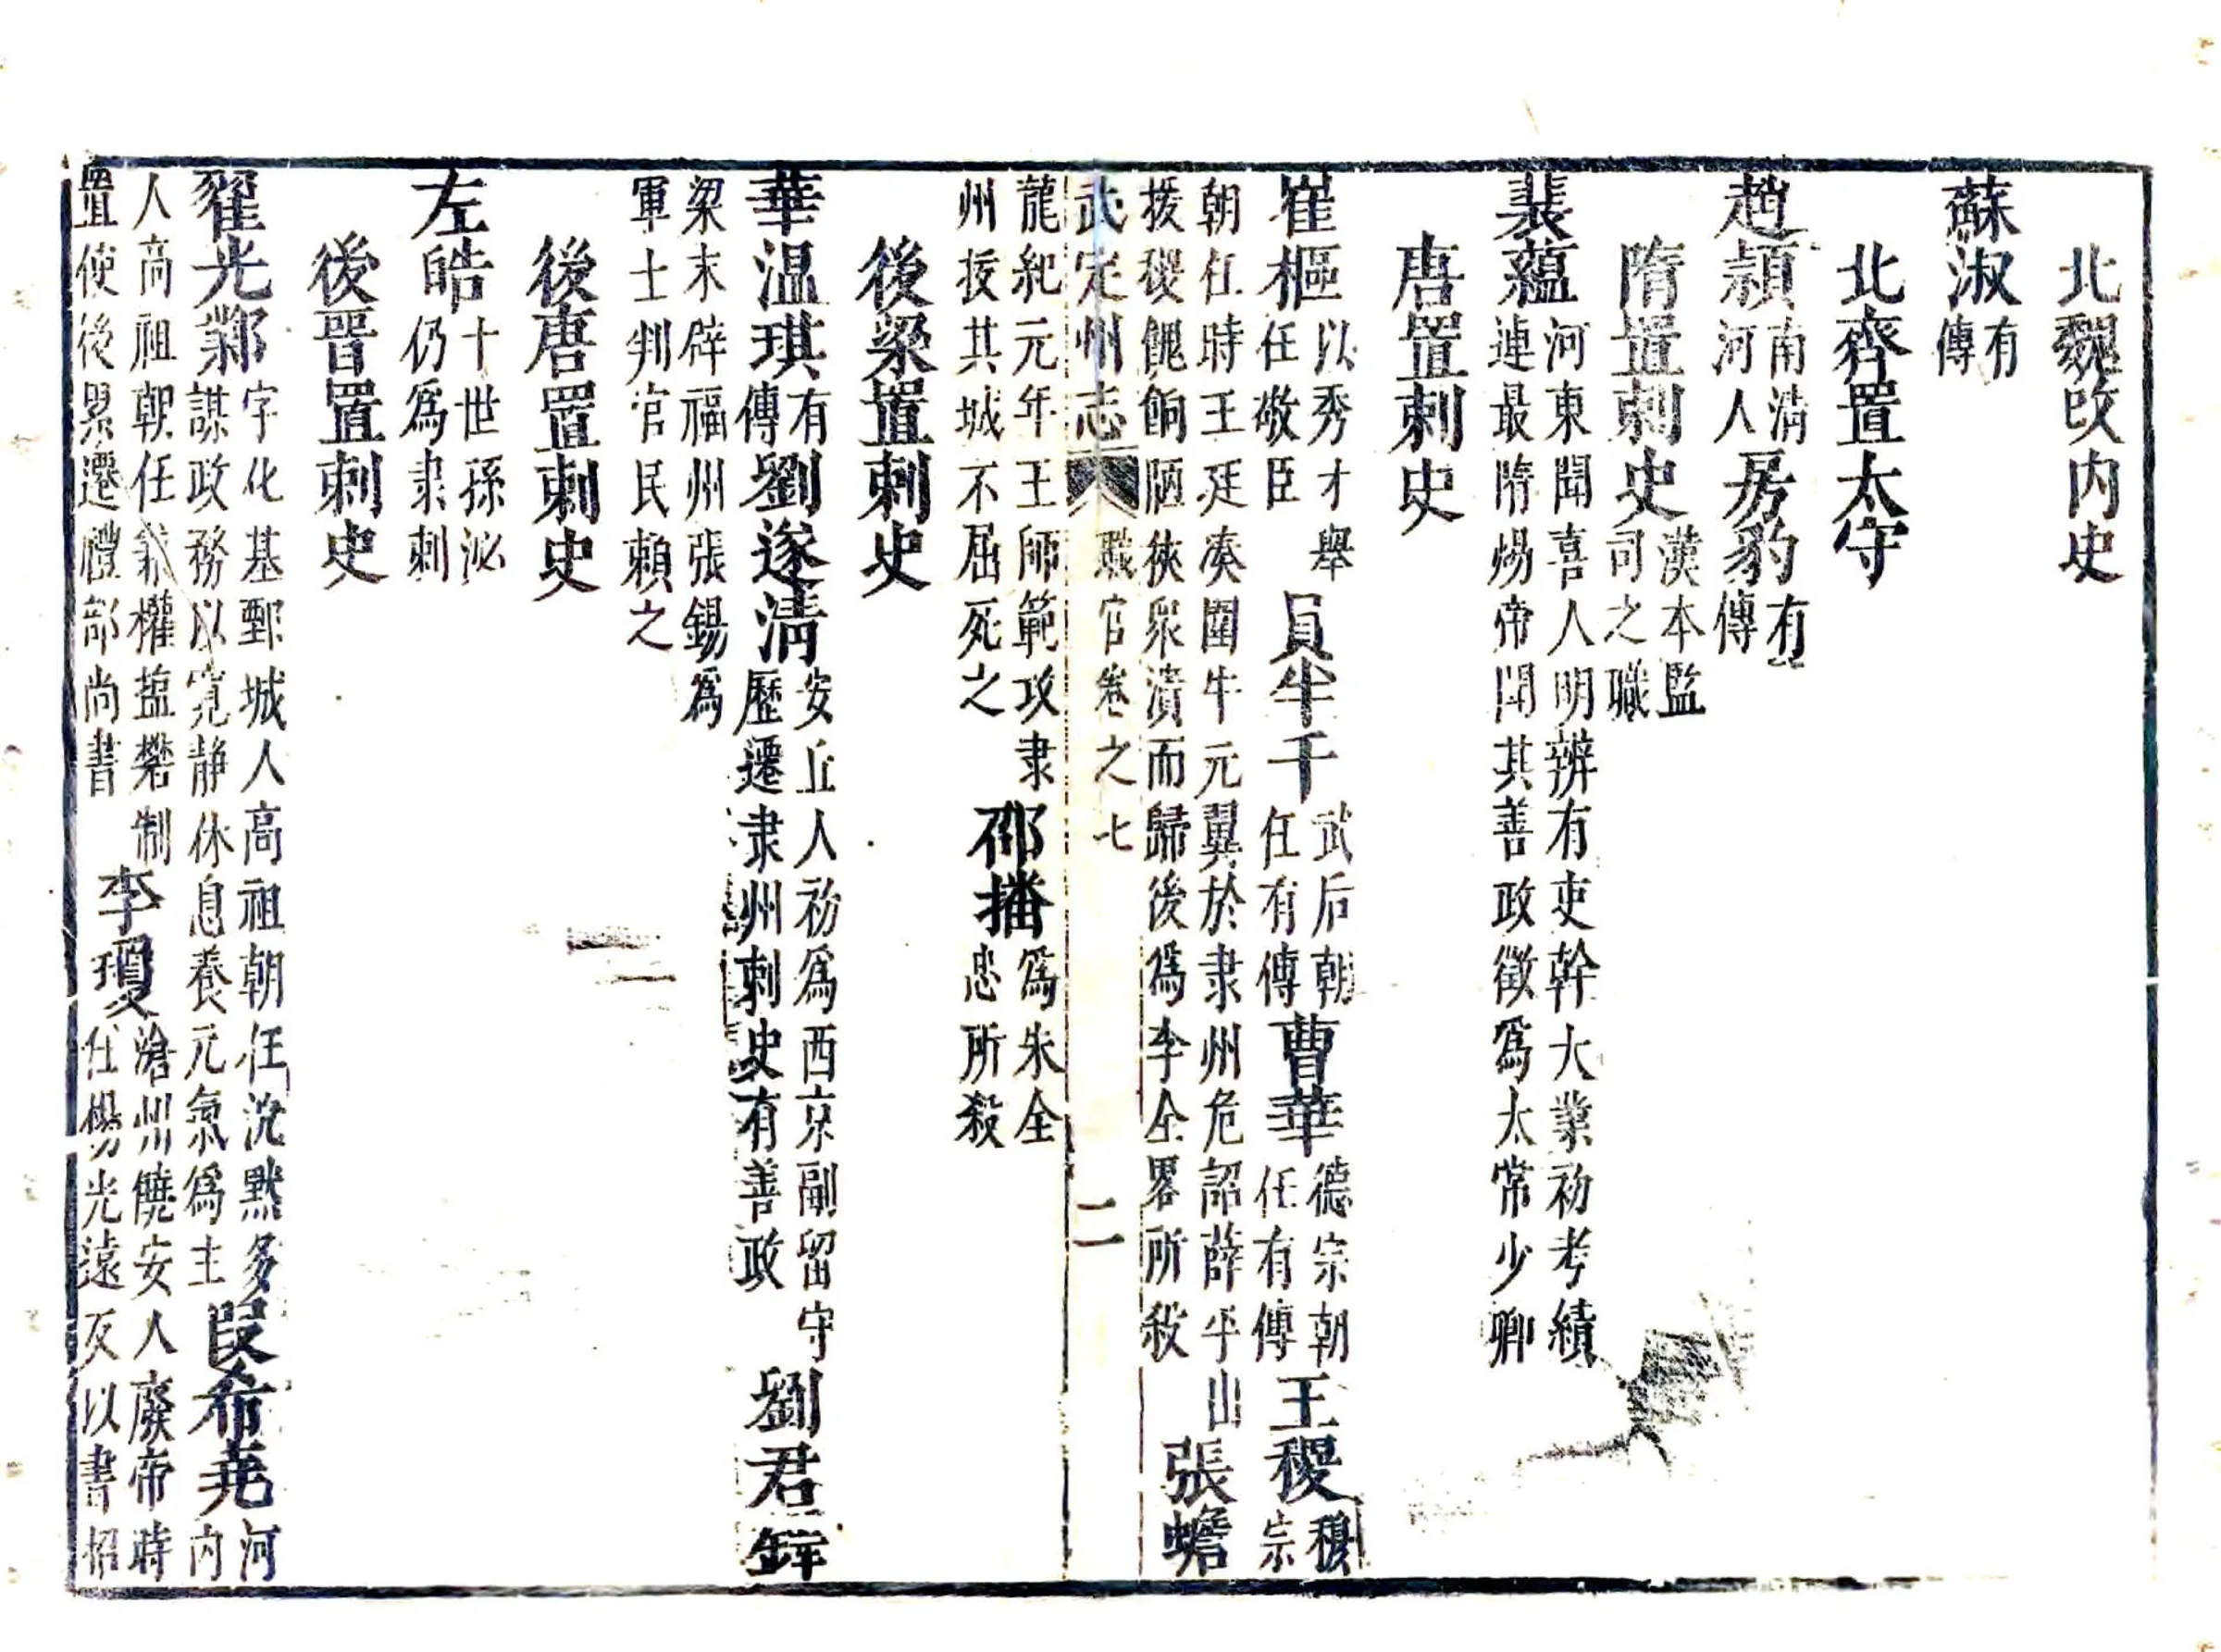 北魏改内史
蘇淑有傳
北齊置太守
趙頴南清河人房豹有傳
隋置刺史漢本監司之職
裴蘊河東聞喜人明辨有吏幹大業初考績連最隋煬帝聞其善政徵爲太常少卿
唐置刺史
崔樞以秀才舉任敬臣員半千武后朝任有傳曹華德宗朝任有傳王稷穆宗
朝任時王廷凑圍牛元翼於隶州危詔薛平山
援稷餽餉陋狹衆潰而歸後爲李全畧所殺張蟾
武定州志 職官卷之七 二
龍紀元年王師範攻隶州按其城不屈死之邵播爲朱全忠所殺
後梁置刺史
華温琪有傳劉遂清安丘人初爲西京副留守歷遷隶州刺史有善政劉君鐸
梁末辟福州張錫爲軍士判官民賴之
後唐置刺史
左皓十世孫泌仍爲隶刺
後晉置刺史
翟光鄴字化基鄄城人高祖朝任沈黙多謀政務以寛静休息養元氣爲主段希尭河内
人高祖朝任兼權盬礬制置使後累遷禮部尚書李瓊滄州饒安人廢帝時仕楊光遠反以書招